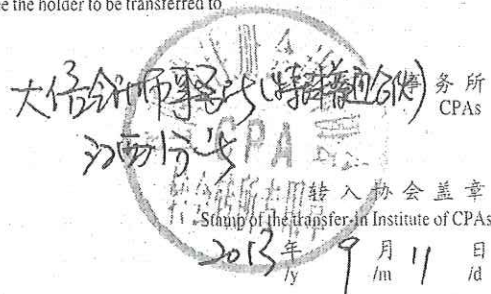 ee the holder to be transferred to
大信会计师事务所(特殊普通合伙)事务所
CPAs
分所
CPA
转入协会盖章
Stamp of the transfer-in Institute of CPAs
2013年9月11日
/y /m /d